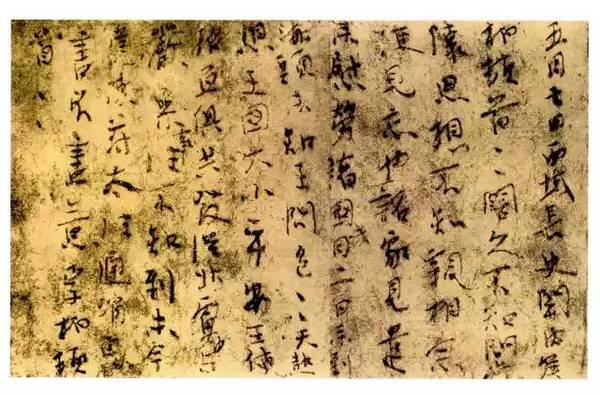 五月七日西域長史關內侯
柏頓首〻闊久不知問
懷思想不知親相念
便見忘也詔家見遣
來慰勞諸國月二日來到
海頭未知王問邑〻天熱
想王國大小平安王使
俱共發從北虜
嚴參事往不知到未今
遣使苻太往通消息
書不盡意李柏頓
首〻